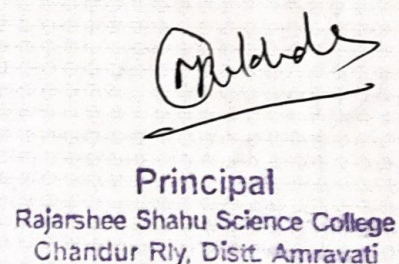 Principal
Rajarshee Shahu Science College
Chandur Rly, Distt. Amravati